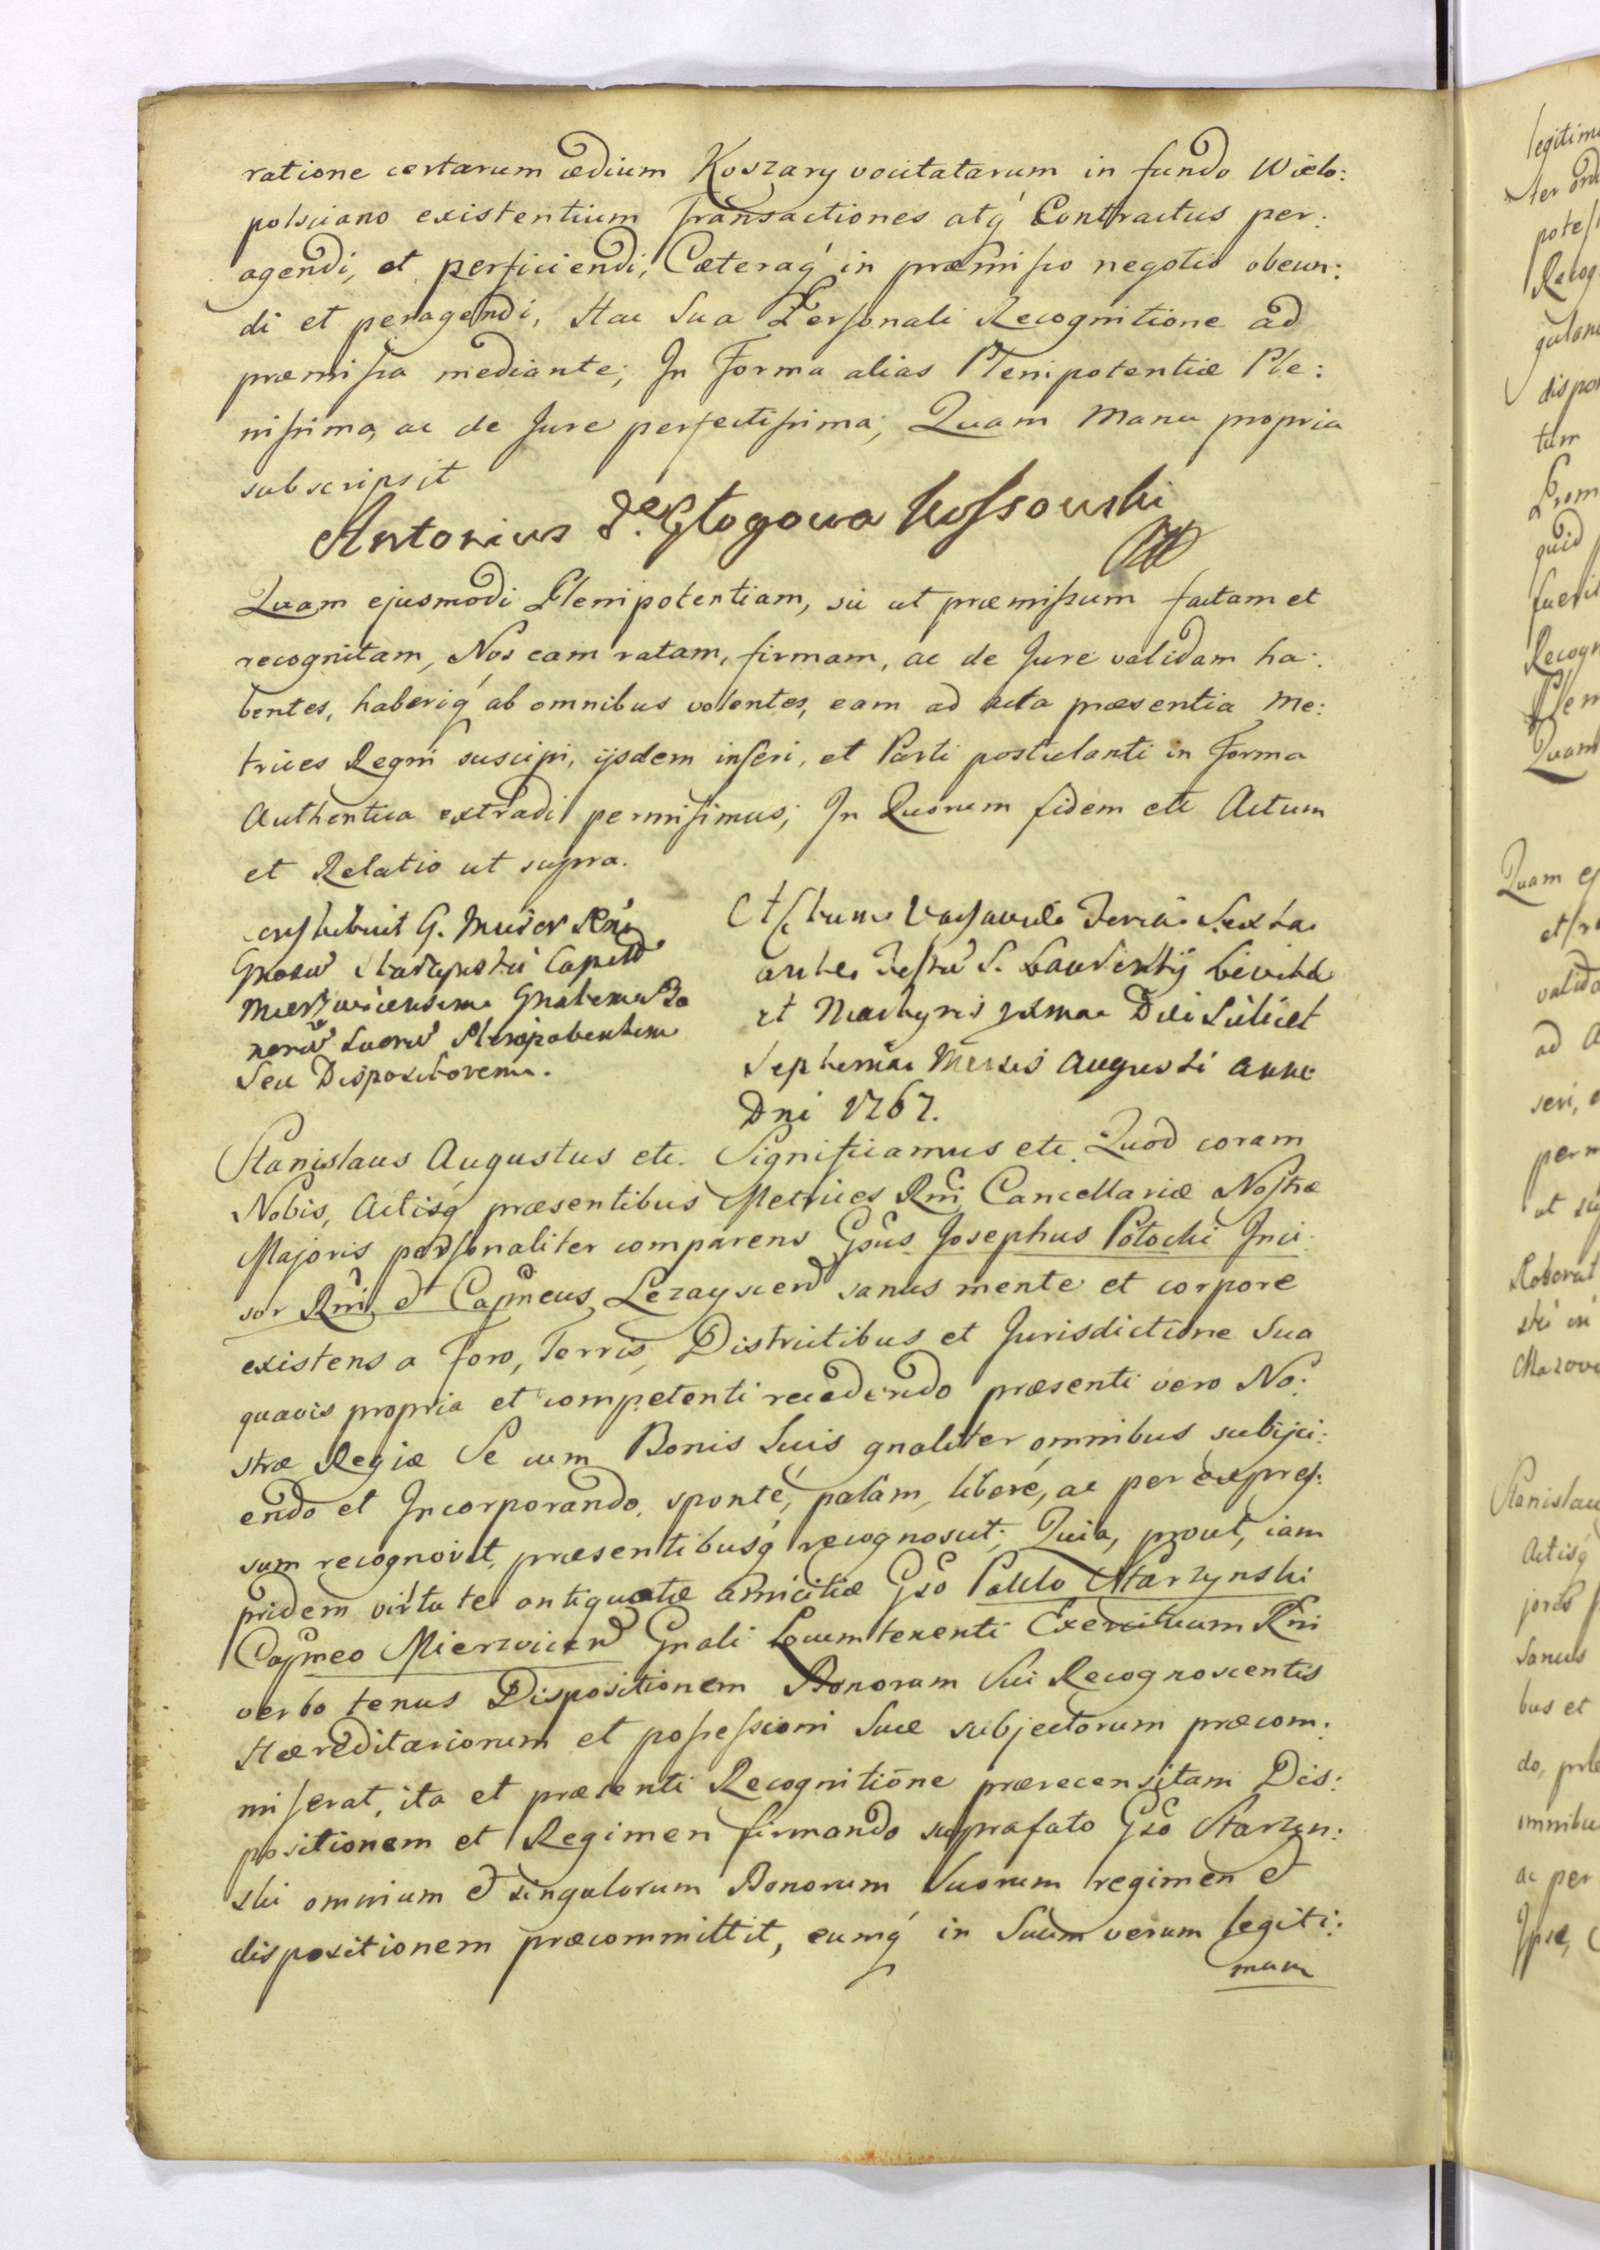 ratione certarum ædium Koszary vocitatarum in fundo Wielo:
polsciano existentium transactiones atq́ Contractus per:
agendi, et perficiendi, Cæteraq́ in præmisso negotio obeun:
di et peragendi, Hac Sua Personali Recognitione ad
præmissa mediante; In Forma alias Plenipotentiæ Ple:
nissima, ac de Jure perfectissima; Quam Manu propria
subscripsit
Antonius de Głogowa Kossowski
Quam ejusmodi Plenipotentiam, sic ut præmissum factam et
recognitam, Nos eam ratam, firmam, ac de Jure validam ha:
bentes, haberiq́ ab omnibus volentes, eam ad Acta præsentia Me:
trices Regni suscipi, ijsdem inseri, et Parti postulanti in Forma
Authentica extradi permisimus; In Quorum fidem etc Actum
et Relatio ut supra.
constituit G.
Starzynski Capit
Mierzvicensem Gnalem Bo
norū Suorū Plenipotentem
Seu Dispositorem.
Actum Varsaviæ Feria Sexta
ante Festū S. Laurentij Levitæ
et Martyris Die Scilicet
Septima Mensis Augusti Anno
Dni 1767.
Stanislaus Augustus etc. Significamus etc. Quod coram
Nobis, Actisq́ præsentibus Metrices Rni Cancellariæ Nostræ
Majoris personaliter comparens Gsus Josephus Potocki Inci:
sor Rni et Capneus Lezayscen sanus mente et corpore
existens a Foro, Terris, Districtibus et Jurisdictione Sua
quavis propria et competenti recedendo præsenti vero No:
stræ Regiæ Se cum Bonis Suis gnaliter omnibus subijci:
endo et Incorporando, sponte, palam, libere, ac per expres:
sum recognovit, præsentibusq́ recognoscit; Quia, prout, iam
pridem virtute antiquatæ amicitiæ Gso Paulo Starzynski
Capneo Mierzvicen Gnali Locumtenenti Exercituum Rni
verbo tenus Dispositionem Bonorum Sui Recognoscentis
Hæreditariorum et possessioni Suæ subjectorum præcom:
miserat, ita et præsenti Recognitione præcensitam Dis:
positionem et Regimen firmando suprafato Gso Starzyn:
ski omnium et singulorum Bonorum Suorum regimen et
dispositionem præcommittit, eumq́ in Suum verum legiti:
mum